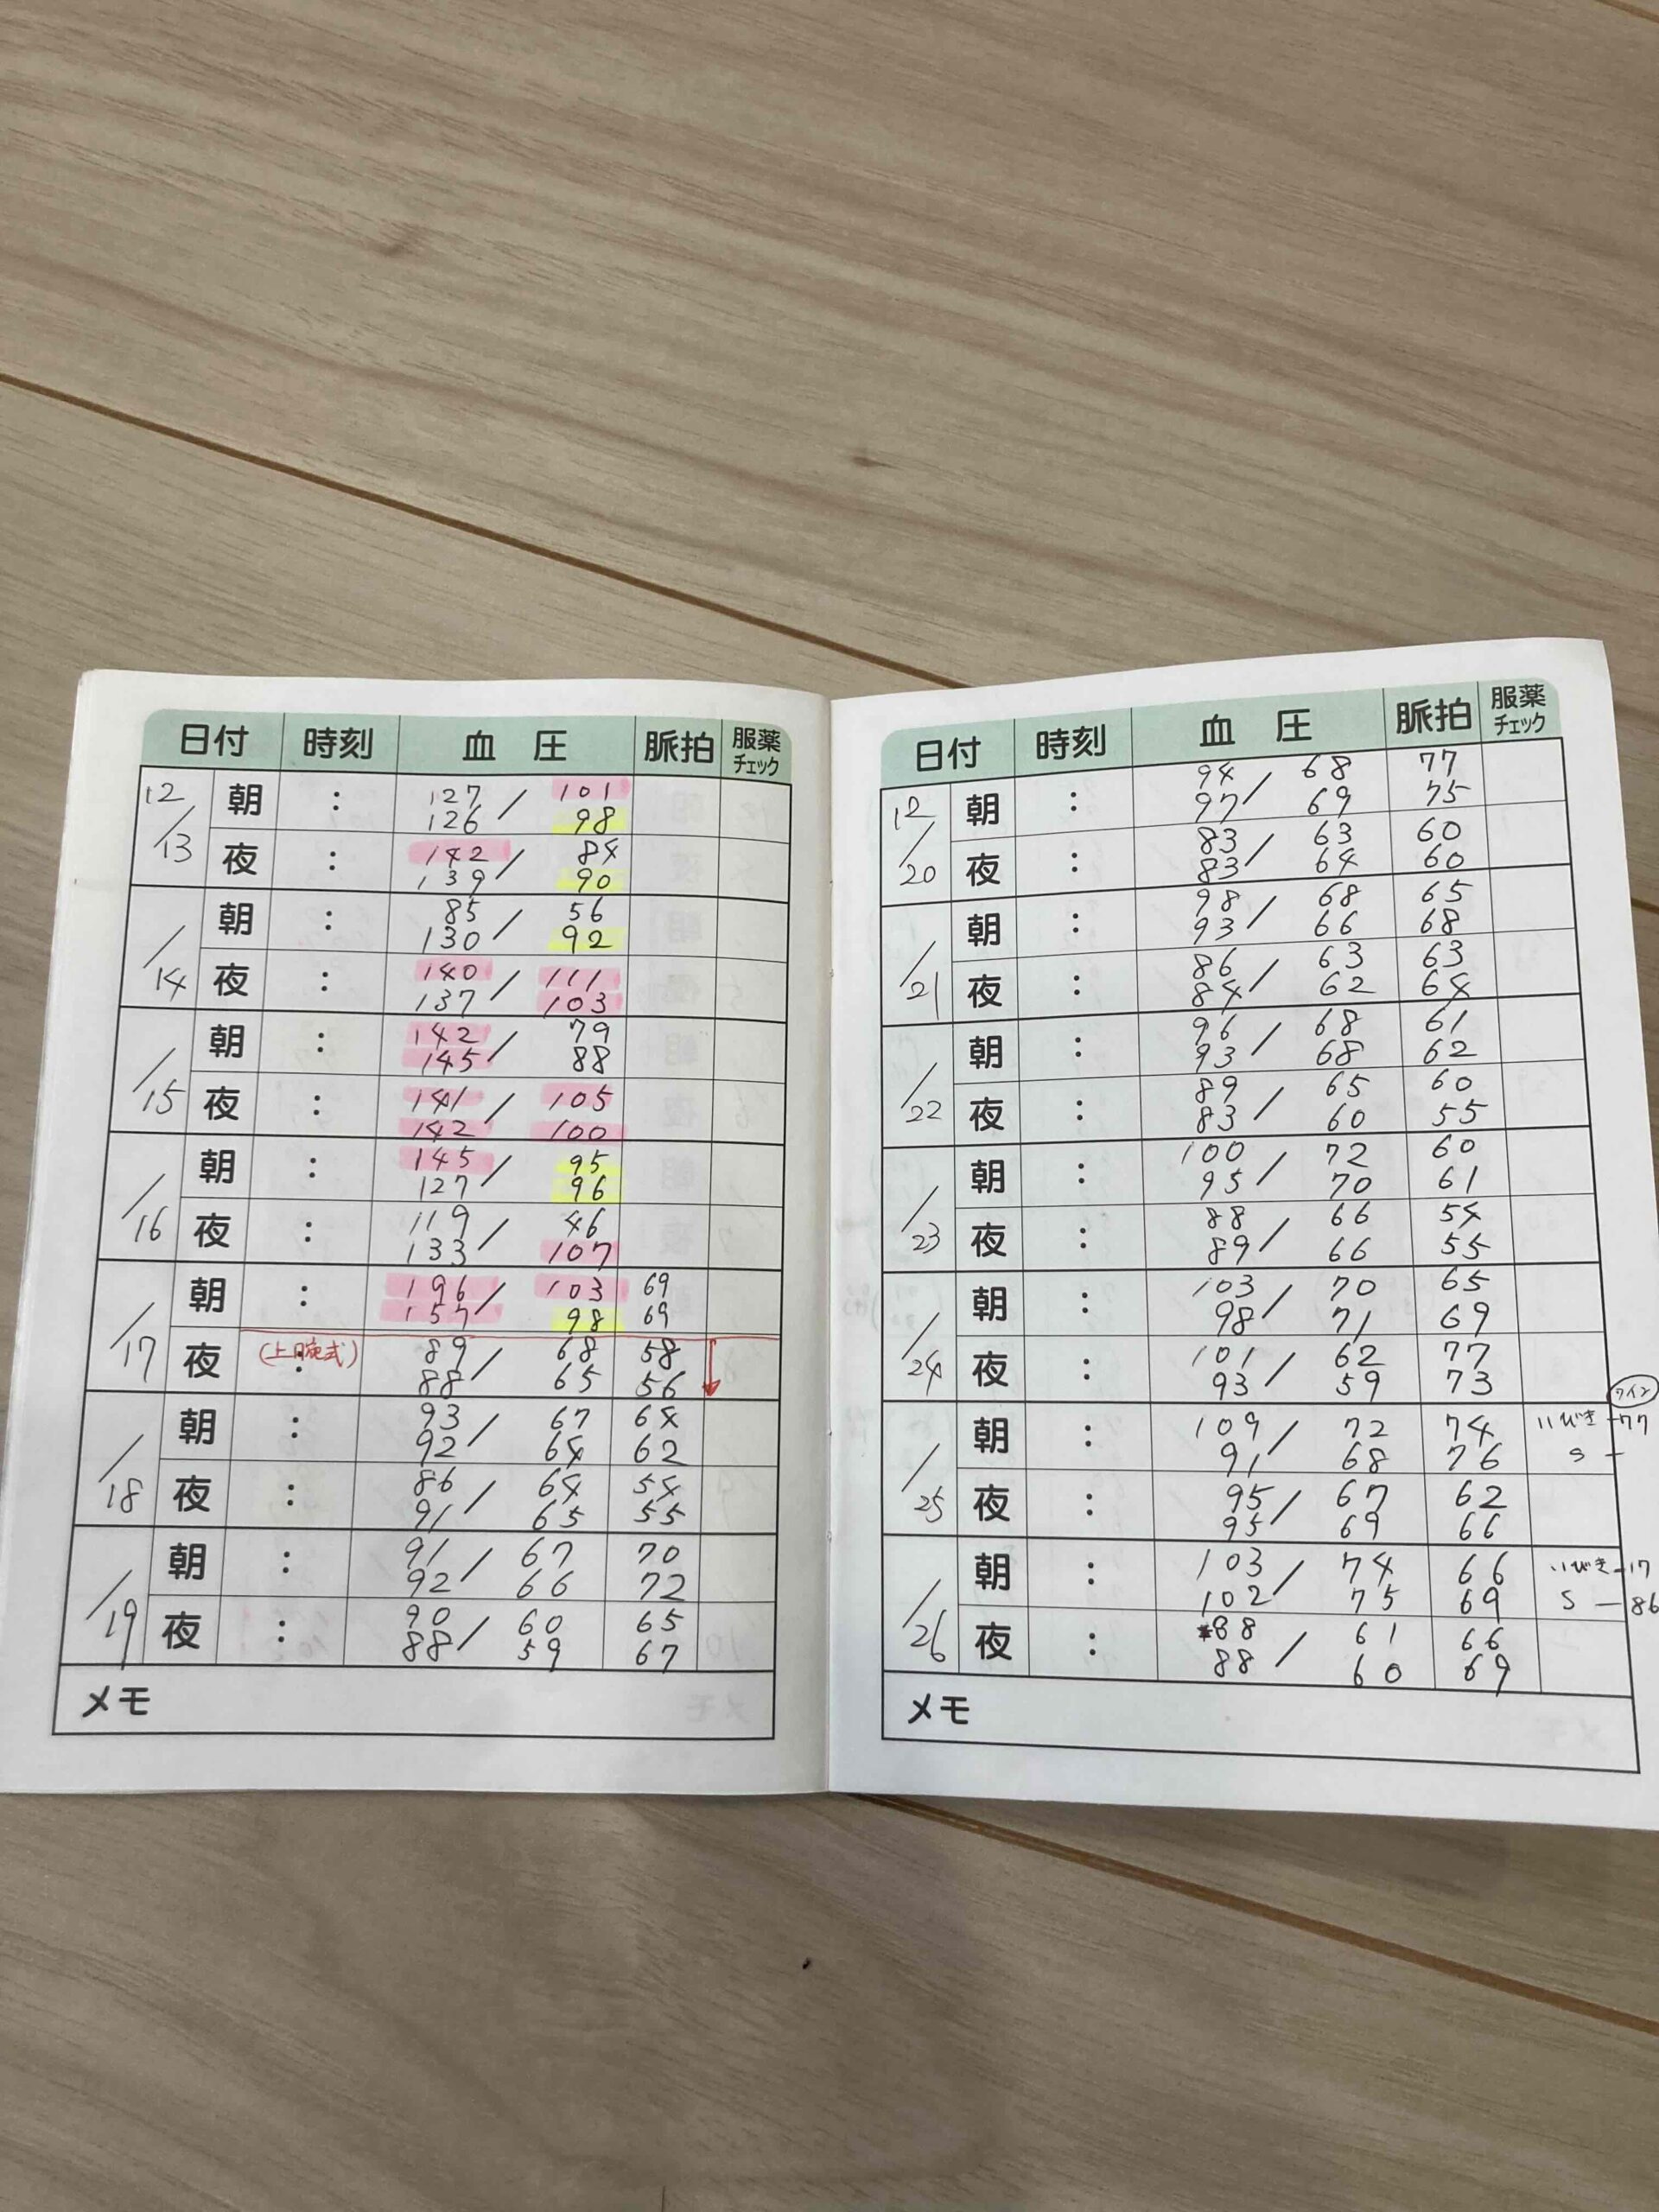 日付 時刻 血圧 脈拍 服薬チェック
12/13 朝 : 127 / 101
126 98
夜 : 142 / 84
139 90
/14 朝 : 85 / 56
130 92
夜 : 140 / 111
137 103
/15 朝 : 142 / 79
145 88
夜 : 141 / 105
142 100
/16 朝 : 145 / 95
127 96
夜 : 119 / 46
133 107
/17 朝 : 196 / 103 69
157 98 69
夜 (上腕式) : 89 / 68 58
88 65 56
/18 朝 : 93 / 67 64
92 64 62
夜 : 86 / 64 54
91 65 55
/19 朝 : 91 / 67 70
92 66 72
夜 : 90 / 60 65
88 59 67
メモ
日付 時刻 血圧 脈拍 服薬チェック
12/20 朝 : 94 / 68 77
97 69 75
夜 : 83 / 63 60
83 64 60
/21 朝 : 98 / 68 65
93 66 68
夜 : 86 / 63 63
84 62 64
/22 朝 : 96 / 68 61
93 68 62
夜 : 89 / 65 60
83 60 55
/23 朝 : 100 / 72 60
95 70 61
夜 : 88 / 66 54
89 66 55
/24 朝 : 103 / 70 65
98 71 69
夜 : 101 / 62 77
93 59 73
ワイン
/25 朝 : 109 / 72 74 いびき-77
91 68 76 S-
夜 : 95 / 67 62
95 69 66
/26 朝 : 103 / 74 66 いびき-17
102 75 69 S-86
夜 : 88 / 61 66
88 60 69
メモ